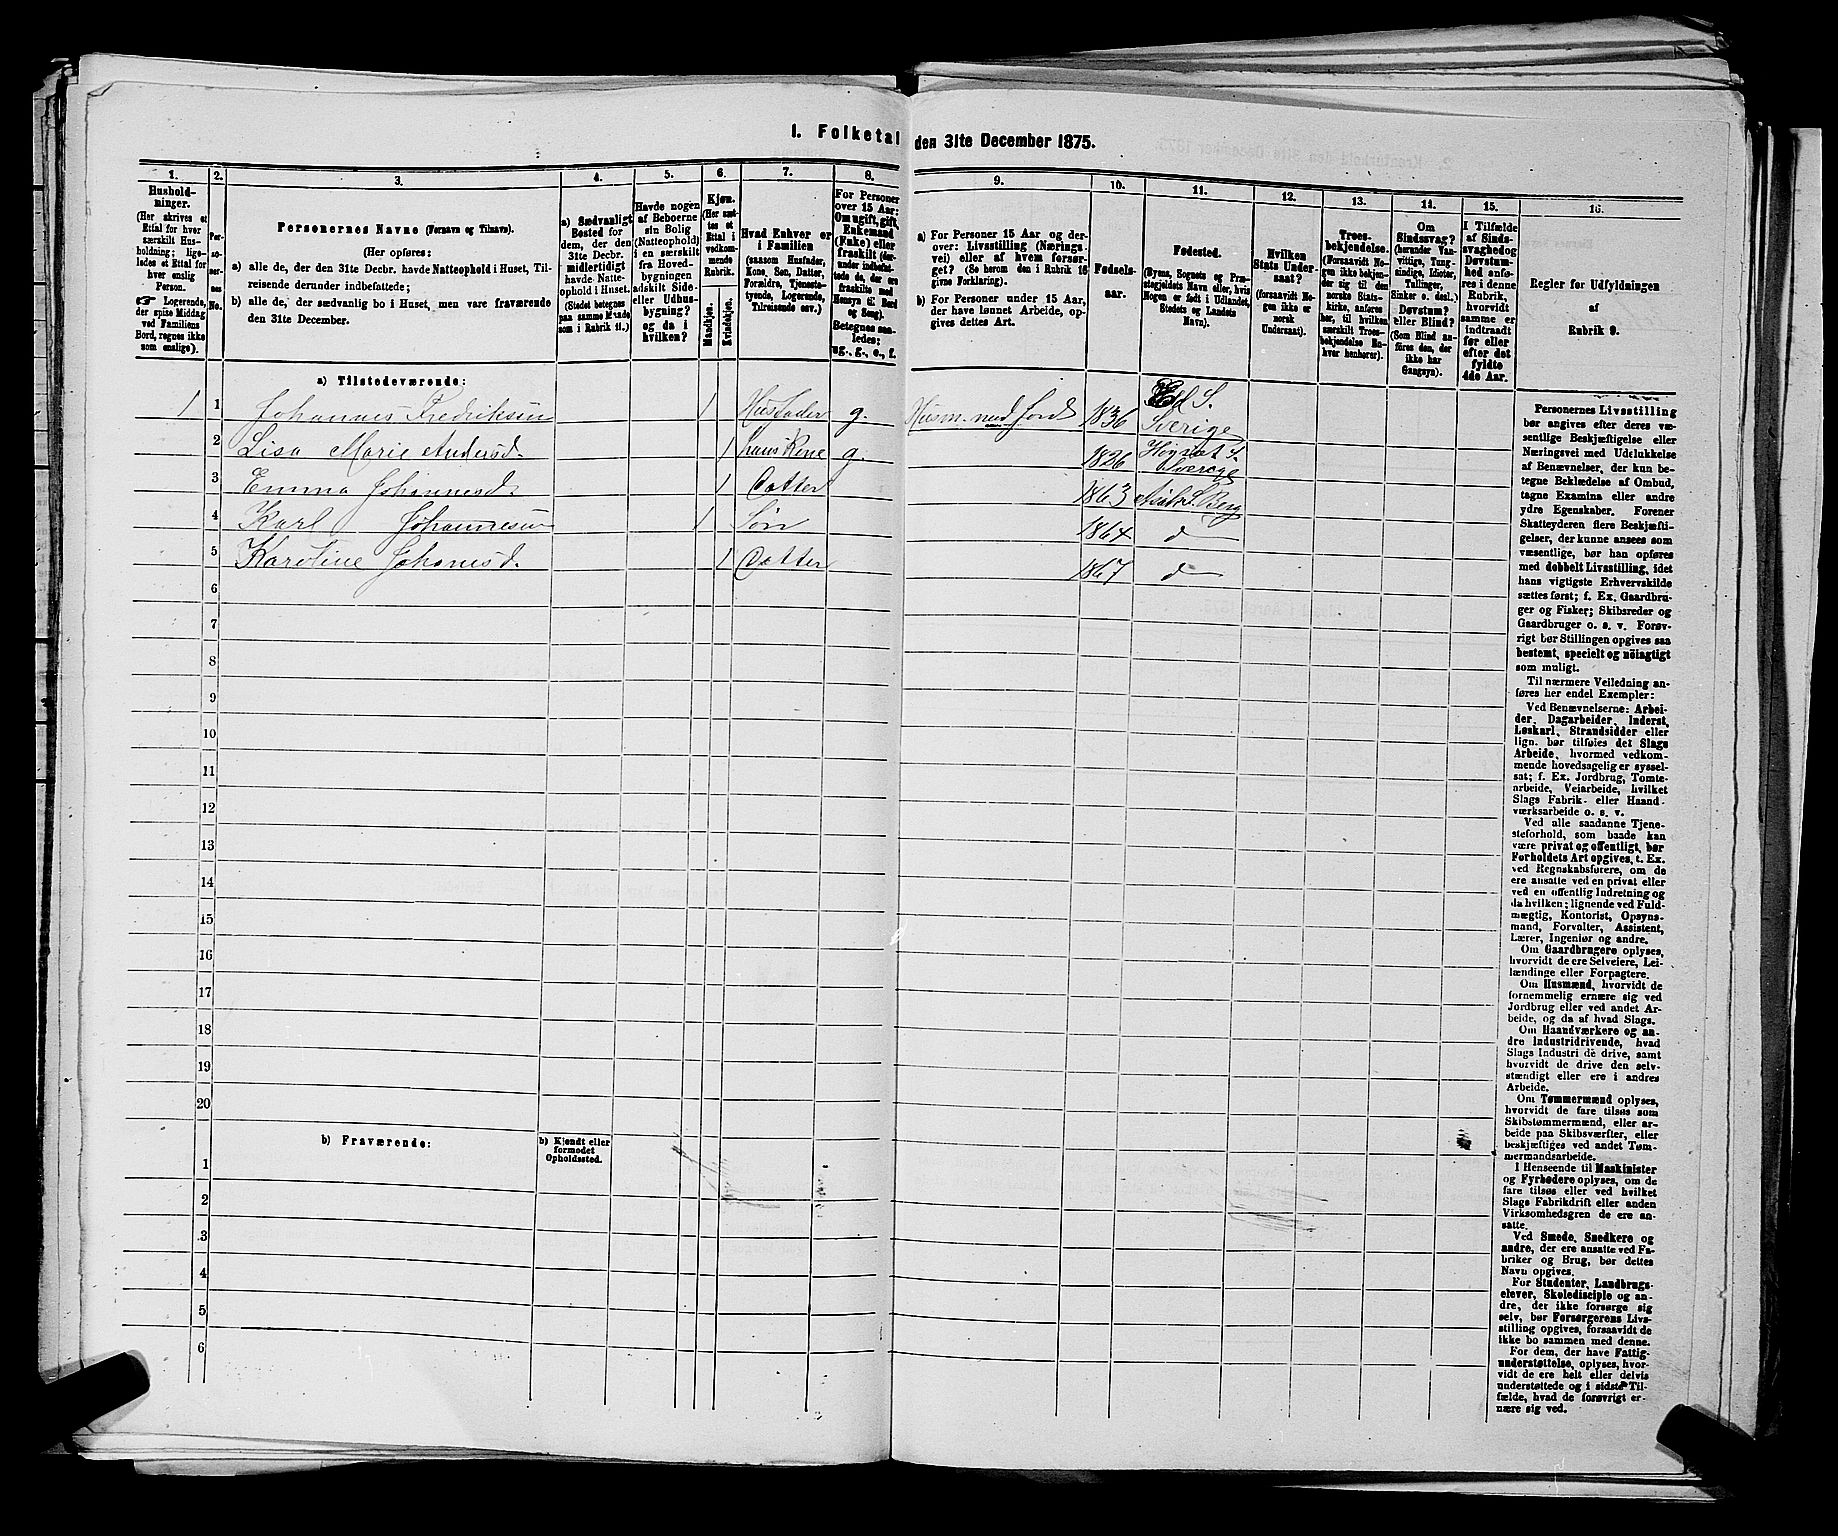 1. Folketal den 31te December 1875.
1.
Hushold-
ninger.
(Her skrives et
Ettal for hver
særskilt Hus-
holdning; lige-
ledes et Ettal for
hver enslig
Person.
☞ Logerende,
der spise Middag
ved Familiens
Bord, regnes ikke
som enslige).
2.
Per-
so-
ner-
nes
No.
3.
Personernes Navne (Fornavn og Tilnavn).
(Her opføres:
a) alle de, der den 31te Decbr. havde Natteophold i Huset, Til-
reisende derunder indbefattede;
b) alle de, der sædvanlig bo i Huset, men vare fraværende
den 31te December.
4.
a) Sædvanligt
Bosted for
dem, der den
31te Decbr.
midlertidigt
havde Natte-
ophold i Huset.
(Stedet betegnes
paa samme Maade
som i Rubrik 11.)
5.
Havde nogen
af Beboerne
sin Bolig
(Natteophold)
i en særskilt
fra Hoved-
bygningen
adskilt Side-
eller Udhus-
bygning?
og da i
hvilken?
6.
Kjøn.
(Her sæt-
tes et
Ettal i
vedkom-
mende
Rubrik.
Mandkjøn.
Kvindekjøn.
7.
Hvad Enhver er
i Familien
(saasom Husfader,
Kone, Søn, Datter,
Forældre, Tjeneste-
tyende, Logerende,
Tilreisende osv.)
8.
For Personer
over 15 Aar:
Om ugift, gift,
Enkemand
(Enke) eller
fraskilt
(derunder indbefat-
tede de, der ere
fraskilte med
Hensyn til Bord
og Seng).
Betegnes saa-
ledes:
ug., g., e., f.
9.
a) For Personer 15 Aar og der-
over: Livsstilling (Nærings-
vei) eller af hvem forsør-
get? (Se herom den i Rubrik 16
givne Forklaring).
b) For Personer under 15 Aar,
der have lønnet Arbeide, op-
gives dettes Art.
10.
Fødsels-
aar.
11.
Fødested.
(Byens, Sognets og Præ-
stegjeldets Navn eller, hvis
Nogen er født i Udlandet,
Stedets og Landets
Navn).
12.
Hvilken
Stats Under-
saat?
(forsaavidt No-
gen ikke er
norsk
Undersaat).
13.
Troes-
bekjendelse.
(Forsaavidt No-
gen ikke bekjen-
der sig til den
norske Stats-
kirke, anføres
her, til hvilken
særskilt Troes-
bekjendelse En-
hver henhører).
14.
Om
Sindssvag?
(herunder Van-
vittige, Tung-
sindige, Idioter,
Tullinger,
Sinker o. desl.)
Døvstum?
eller Blind?
(Som Blind an-
føres den, der
ikke har
Gangsyn).
15.
I Tilfælde
af Sinds-
svaghed og
Døvstum-
hed anfø-
res i denne
Rubrik,
hvorvidt
samme er
indtraadt
før eller
efter det
fyldte
4de Aar.
16.
Regler for Udfyldningen
af
Rubrik 9.
a) Tilstedeværende:
1 1 Johannes Fredriksen 1 Husfader g. Husm. med Jord 1836 S. Sverige
2 Lisa Marie Andersd. 1 hans Kone g. 1826 S. Sverige
3 Emma Johannesd. 1 Datter 1863 S. Berg
4 Karl Johannesen 1 Søn 1864 d
5 Karoline Johanesd. 1 Datter 1867 d
6
7
8
9
10
11
12
13
14
15
16
17
18
19
20
b) Fraværende:
b) Kjendt eller
formodet
Opholdssted.
1
2
3
4
5
6
Personernes Livsstilling
bør angives efter deres væ-
sentlige Beskjæftigelse eller
Næringsvei med Udelukkelse
af Benævnelser, der kun be-
tegne Beklædelse af Ombud,
tagne Examina eller andre
ydre Egenskaber. Forener
Skatteyderen flere Beskjæfti-
gelser, der kunne ansees som
væsentlige, bør han opføres
med dobbelt Livsstilling, idet
hans vigtigste Erhvervskilde
sættes først; f. Ex. Gaardbru-
ger og Fisker; Skibsreder og
Gaardbruger o. s. v. Forøv-
rigt bør Stillingen opgives saa
bestemt, specielt og nøiagtigt
som muligt.
Til nærmere Veiledning an-
føres her endel Exempler:
Ved Benævnelserne: Arbei-
der, Dagarbeider, Inderst,
Løskarl, Strandsidder eller
lign. bør tilføies det Slags
Arbeide, hvormed vedkom-
mende hovedsagelig er syssel-
sat; f. Ex. Jordbrug, Tomte-
arbeide, Veiarbeide, hvilket
Slags Fabrik- eller Haand-
værksarbeide o. s. v.
Ved alle saadanne Tjene-
steforhold, som baade kan
være privat og offentligt, bør
Forholdets Art opgives, t. Ex.
ved Regnskabsførere, om de
ere ansatte ved en privat eller
ved en offentlig Indretning og
da hvilken; lignende ved Fuld-
mægtig, Kontorist, Opsyns-
mand, Forvalter, Assistent,
Lærer, Ingeniør og andre.
Om Gaardbrugere oplyses,
hvorvidt de ere Selveiere, Lei-
lændinge eller Forpagtere.
Om Husmænd, hvorvidt de
fornemmelig ernære sig ved
Jordbrug eller ved andet Ar-
beide, og da af hvad Slags.
Om Haandværkere og an-
dre Industridrivende, hvad
Slags Industri de drive, samt
hvorvidt de drive den selv-
stændigt eller ere i andres
Arbeide.
Om Tømmermænd oplyses,
hvorvidt de fare tilsøs som
Skibstømmermænd, eller ar-
beide paa Skibsværfter, eller
beskjæftiges ved andet Tøm-
mermandsarbeide.
I Henseende til Maskinister
og Fyrbødere oplyses, om de
fare tilsøs eller ved hvilket
Slags Fabrikdrift eller anden
Virksomhedsgren de ere an-
satte.
Ved Smede, Snedkere og
andre, der ere ansatte ved Fa-
briker og Brug, bør dettes
Navn opgives.
For Studenter, Landbrugs-
elever, Skoledisciple og an-
dre, der ikke forsørge sig
selv, bør Forsørgerens Livs-
stilling opgives, forsaavidt de
ikke bo sammen med denne.
For dem, der have Fattig-
understøttelse, oplyses, hvor-
vidt de ere helt eller delvis
understøttede og i sidste Til-
fælde, hvad de forøvrigt er-
nære sig ved.